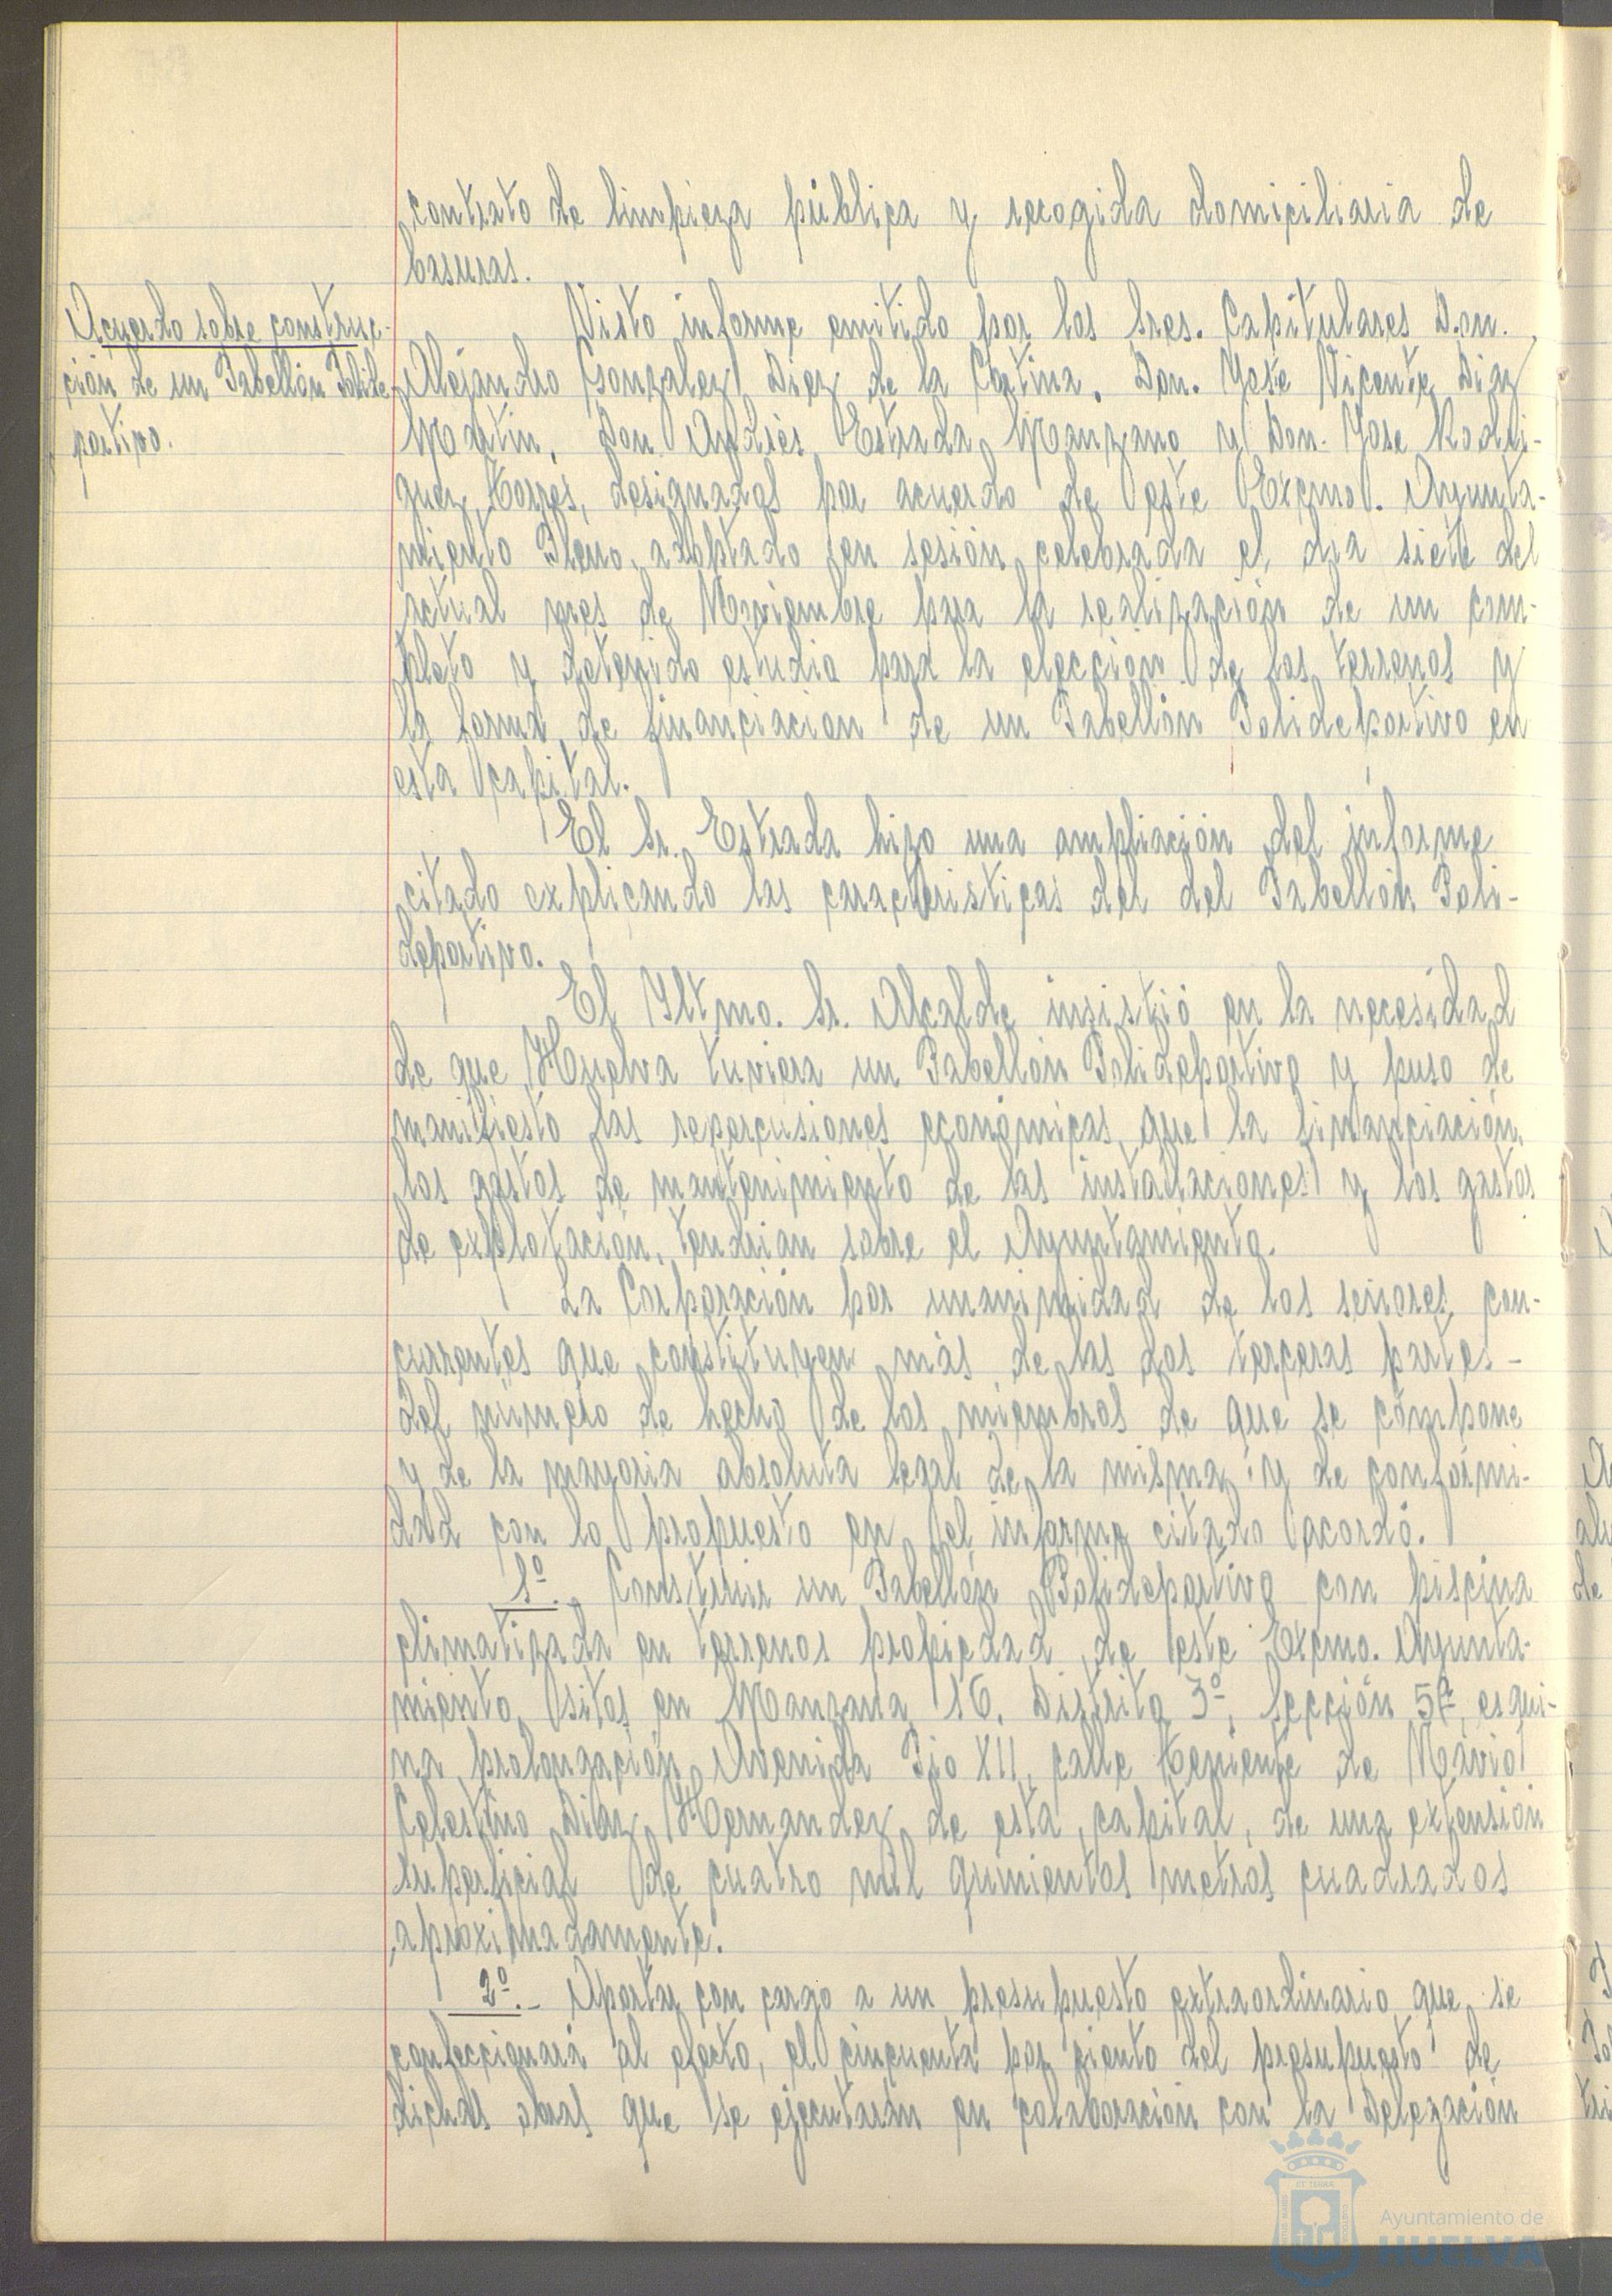 contrato de limpieza pública y recogida domiciliaria de
basuras.
Acuerdo sobre construc-
ción de un Pabellón Polide-
portivo.
Visto informe emitido por los Sres. Capitulares Don.
Alejandro Gonzalez Diez de la Cortina, Don. Jose Vicente Diaz
Martin, Don Andrés Estrada Manzano y Don. Jose Rodri-
guez Torres, designados por acuerdo de este Excmo. Ayunta-
miento Pleno, adoptado en sesión celebrada el dia siete del
actual mes de Noviembre para la realización de un com-
pleto y detenido estudio para la elección de los terrenos y
la forma de financiacion de un Pabellón Polideportivo en
esta capital.
El Sr. Estrada hizo una ampliación del informe
citado explicando las caracteristicas del del Pabellón Poli-
deportivo.
El Iltmo. Sr. Alcalde insistió en la necesidad
de que Huelva tuviera un Pabellón Polideportivo y puso de
manifiesto las repercusiones económicas que la financiación,
los gastos de mantenimiento de las instalaciones y los gastos
de explotación, tendrian sobre el Ayuntamiento.
La Corporación por unanimidad de los señores con-
currentes que constituyen más de las dos terceras partes-
del número de hecho de los miembros de que se compone
y de la mayoria absoluta legal de la misma y de conformi-
dad con lo propuesto en el informe citado acordó.
1º.- Construir un Pabellón Polideportivo con piscina
climatizada en terrenos propiedad de este Excmo. Ayunta-
miento, sitos en Manzana 16, Distrito 3º, Sección 5ª, esqui-
na prolongación Avenida Pio XII, calle Teniente de Navio
Celestino Diaz Hernandez de esta capital, de una extensión
superficial de cuatro mil quinientos metros cuadrados
aproximadamente.
2º.- Aportar con cargo a un presupuesto extraordinario que se
confeccionará al efecto, el cincuenta por ciento del presupuesto de
dichas obras que se ejecutarán en colaboración con la Delegación
Ayuntamiento de
HUELVA